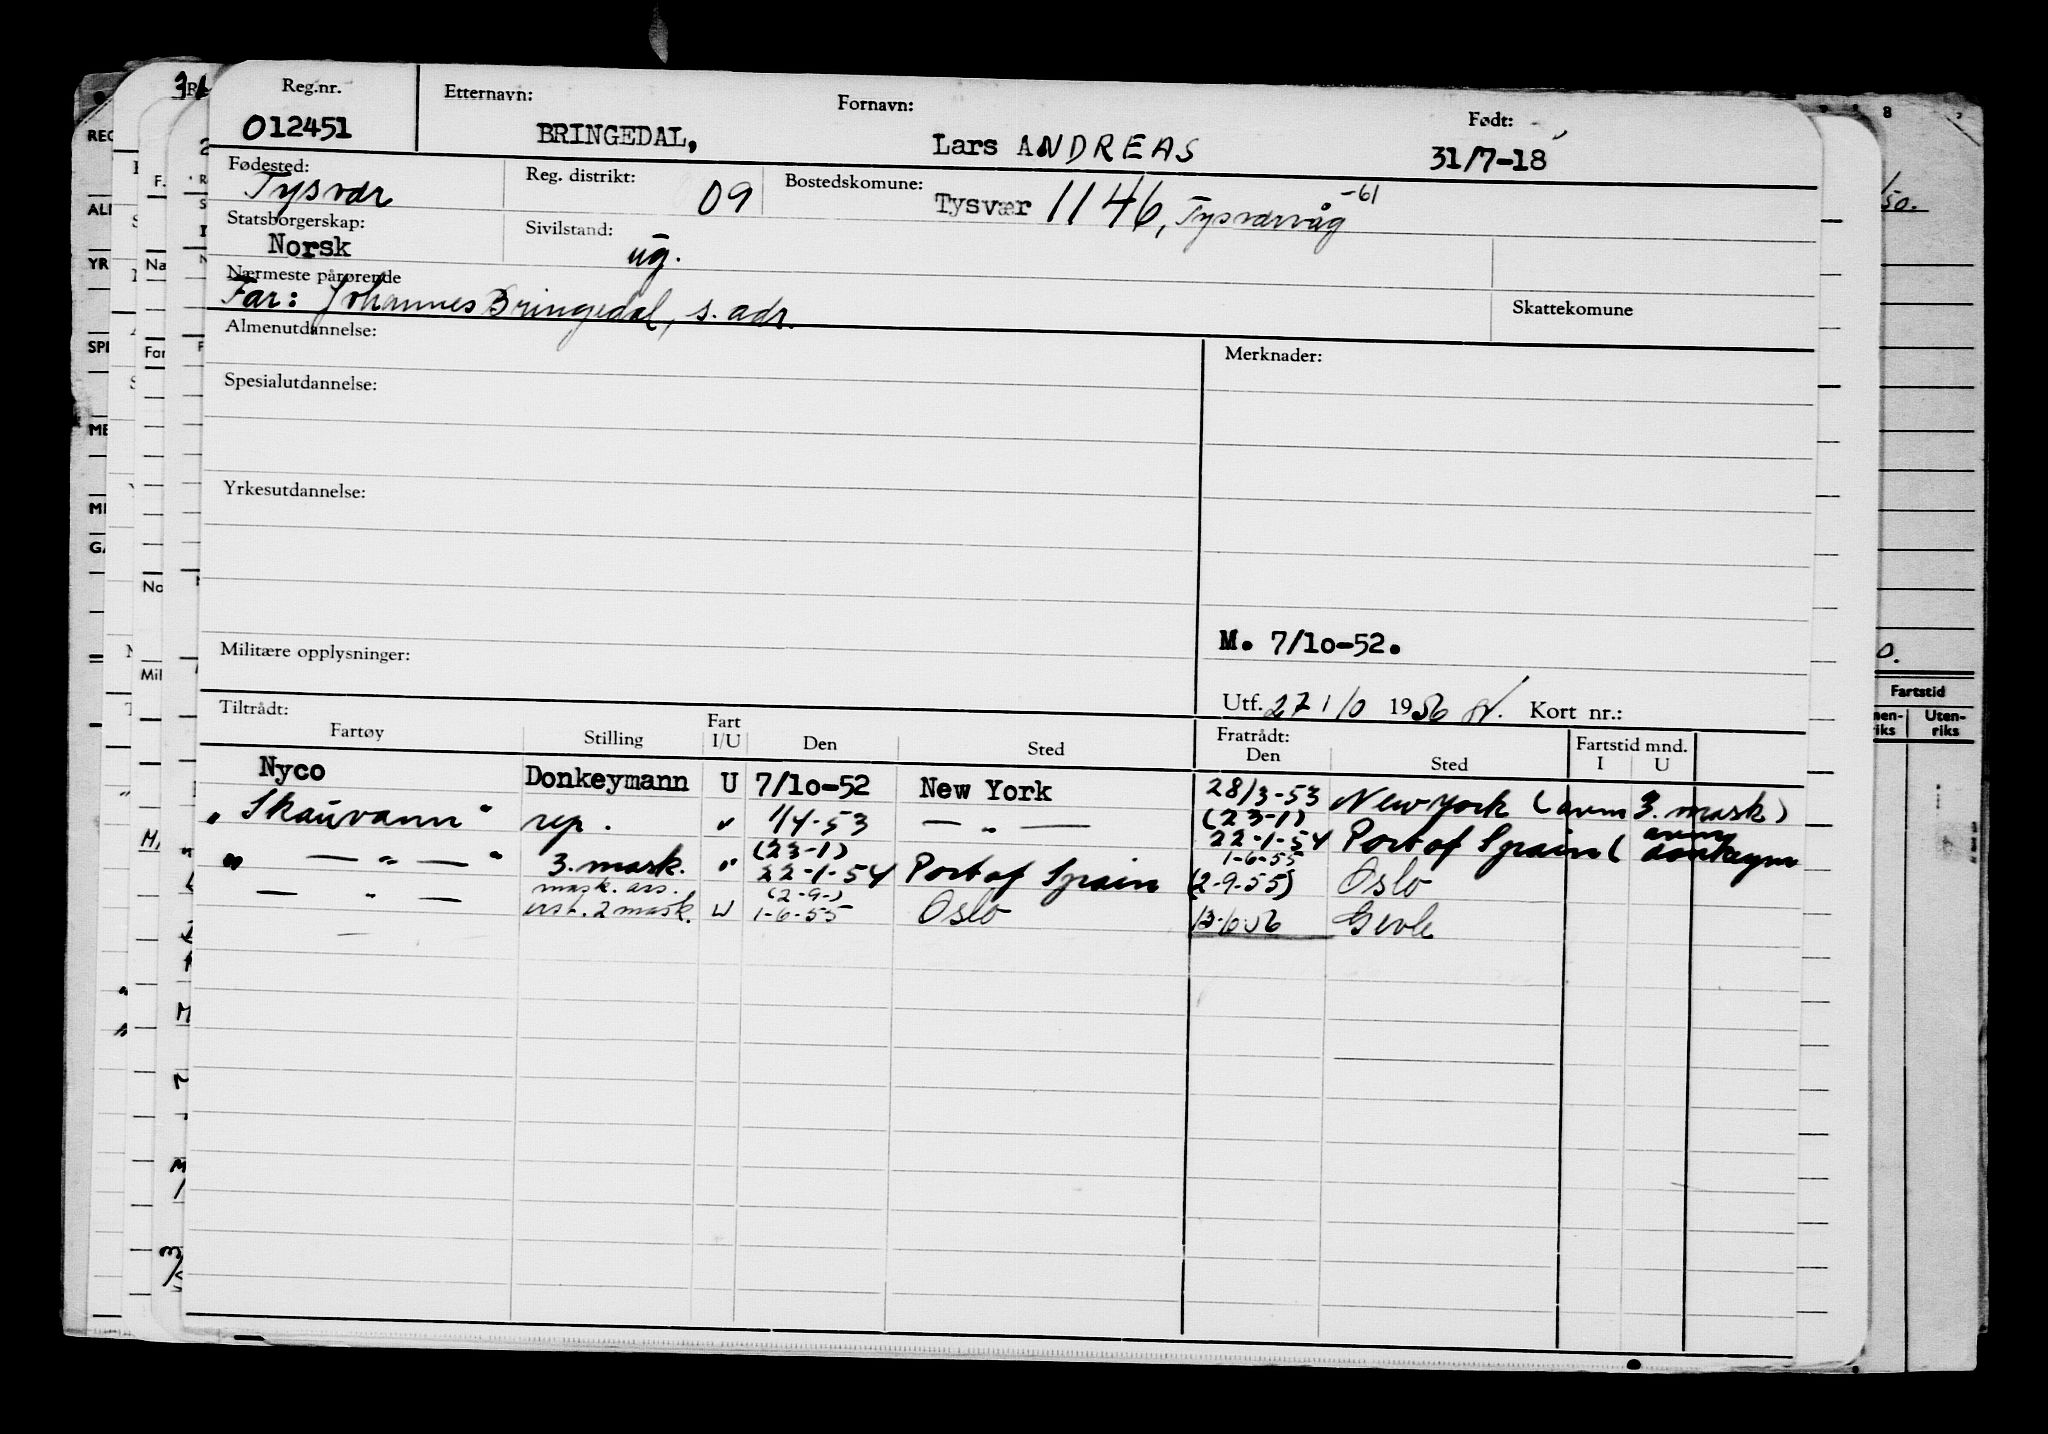 Reg.nr. Etternavn: Fornavn: Født:
012451 BRINGEDAL, Lars ANDREAS 31/7-18
Fødested: Reg. distrikt: Bostedskomune:
Tysvær 09 Tysvær 1146, Tysværvåg -61
Statsborgerskap: Sivilstand:
Norsk ug.
Nærmeste pårørende Skattekomune
Far: Johannes Bringedal, s. adr.
Almenutdannelse: Merknader:
Spesialutdannelse:
Yrkesutdannelse:
M. 7/10-52.
Militære opplysninger:
Utf. 27 1/0 1956 Kort nr.:
Tiltrådt: Fratrådt:
Fartøy Stilling Fart I/U Den Sted Den Sted Fartstid mnd. I U
Nyco Donkeymann U 7/10-52 New York 28/3-53 New York (avm 3. mask)
"Skauvann" rep. " 1/4-53 — " — (23-1) 22-1-54 Port of Spain (avm donkeym
" — " — " 3. mask. " (23-1) 22-1-54 Port of Spain 1-6-55 (2-9-55) Oslo
— " — mask. ass. erst. 2 mask. U (2-9-) 1-6-55 Oslo 13-10-56 Gevle
Fartstid
Uten-
riks